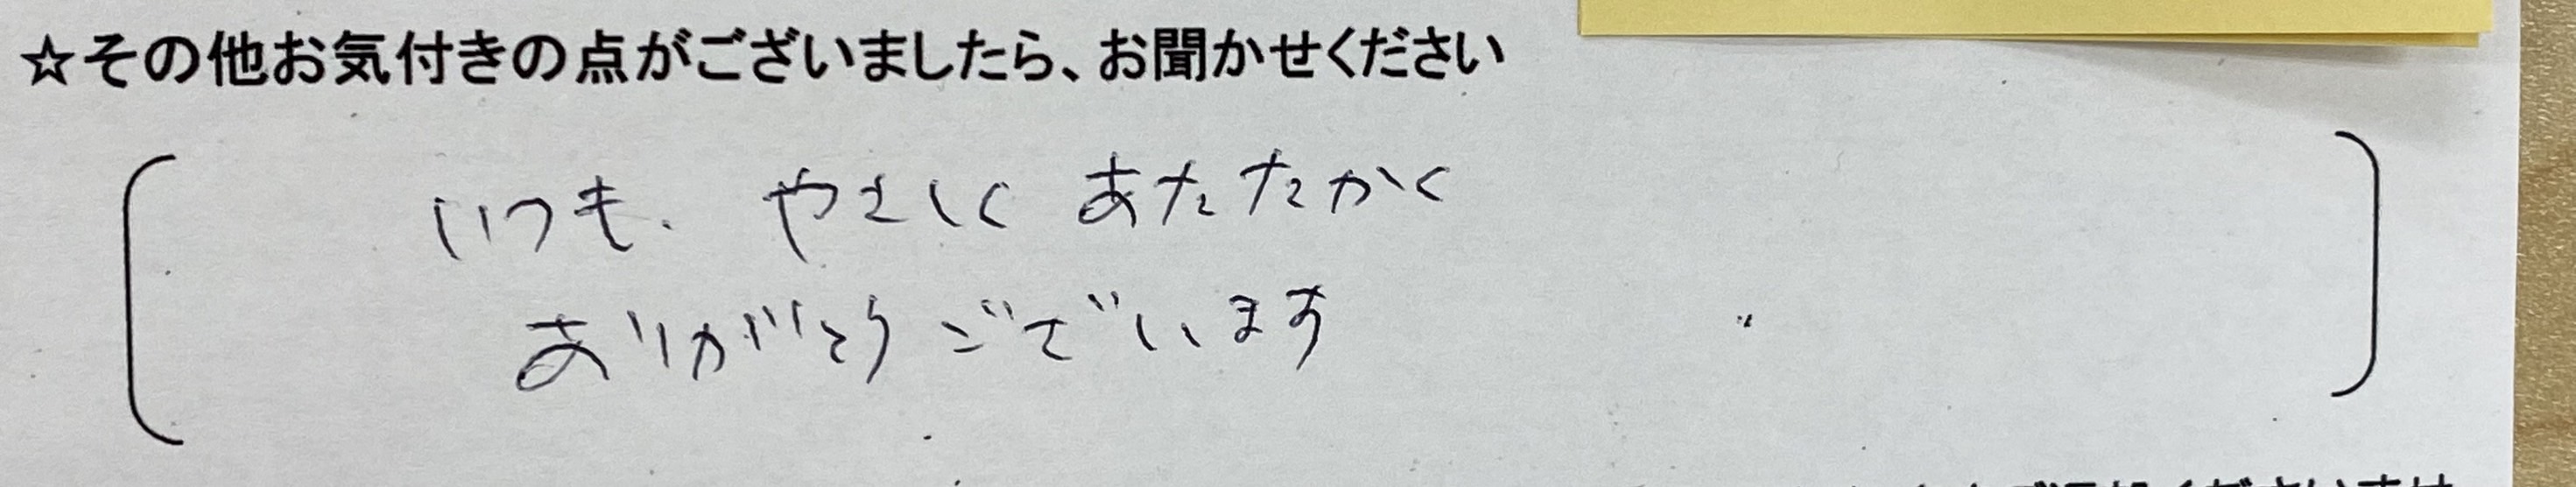 ☆その他お気付きの点がございましたら、お聞かせください
いつも. やさしく あたたかく
ありがとうございます